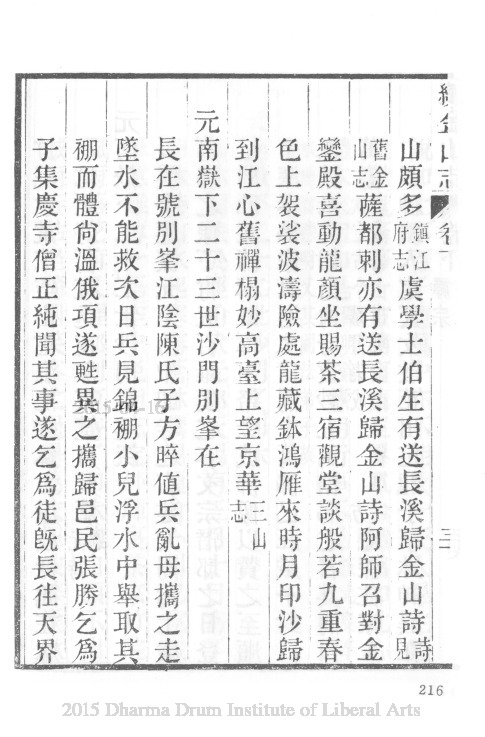 續金山志 卷下 三
山頗多鎮江府志虞學士伯生有送長溪歸金山詩詩見
舊金山志薩都剌亦有送長溪歸金山詩阿師召對金
鑾殿喜動龍顏坐賜茶三宿觀堂談般若九重春
色上袈裟波濤險處龍藏鉢鴻雁來時月印沙歸
到江心舊禪榻妙高臺上望京華三山志
元南嶽下二十三世沙門別峯在
長在號別峯江陰陳氏子方晬値兵亂母攜之走
墜水不能救次日兵見錦禂小兒浮水中舉取其
禂而體尙溫俄頃遂甦異之攜歸邑民張勝乞爲
子集慶寺僧正純聞其事遂乞爲徒旣長往天界
216
2015-10-16
2015 Dharma Drum Institute of Liberal Arts